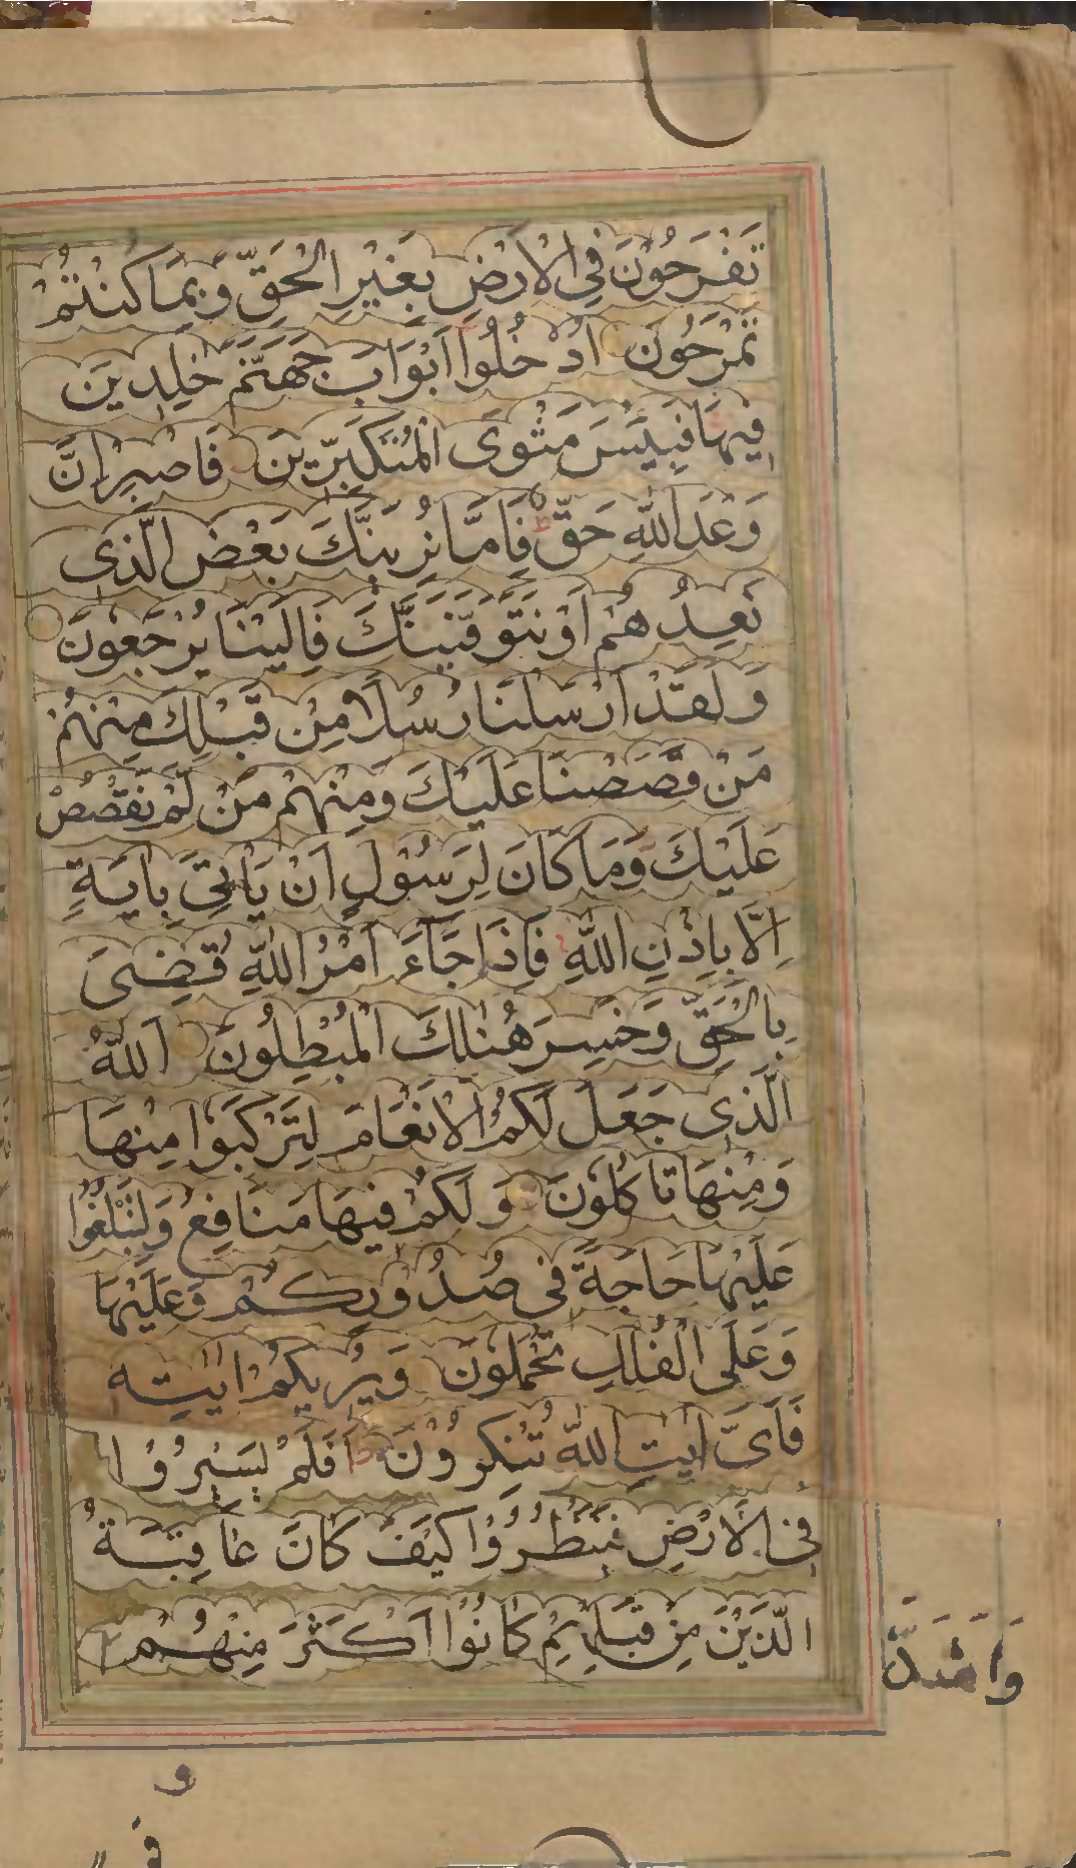 تَفْرَحُوْنَ فِي الْاَرْضِ بِغَيْرِ الْحَقِّ وَبِمَا كُنْتُمْ
تَمْرَحُوْنَ اُدْخُلُوْا اَبْوَابَ جَهَنَّمَ خٰلِدِيْنَ
فِيْهَا فَبِئْسَ مَثْوَى الْمُتَكَبِّرِيْنَ فَاصْبِرْ اِنَّ
وَعْدَ اللّٰهِ حَقٌّ فَاِمَّا نُرِيَنَّكَ بَعْضَ الَّذِى
نَعِدُهُمْ اَوْ نَتَوَفَّيَنَّكَ فَاِلَيْنَا يُرْجَعُوْنَ
وَلَقَدْ اَرْسَلْنَا رُسُلًا مِنْ قَبْلِكَ مِنْهُمْ
مَنْ قَصَصْنَا عَلَيْكَ وَمِنْهُمْ مَنْ لَّمْ نَقْصُصْ
عَلَيْكَ وَمَا كَانَ لِرَسُوْلٍ اَنْ يَاْتِىَ بِاٰيَةٍ
اِلَّا بِاِذْنِ اللّٰهِ فَاِذَا جَآءَ اَمْرُ اللّٰهِ قُضِىَ
بِالْحَقِّ وَخَسِرَ هُنَالِكَ الْمُبْطِلُوْنَ اَللّٰهُ
الَّذِى جَعَلَ لَكُمُ الْاَنْعَامَ لِتَرْكَبُوْا مِنْهَا
وَمِنْهَا تَاْكُلُوْنَ وَلَكُمْ فِيْهَا مَنَافِعُ وَلِتَبْلُغُوْا
عَلَيْهَا حَاجَةً فِى صُدُوْرِكُمْ وَعَلَيْهَا
وَعَلَى الْفُلْكِ تُحْمَلُوْنَ وَيُرِيْكُمْ اٰيٰتِهٖ
فَاَىَّ اٰيٰتِ اللّٰهِ تُنْكِرُوْنَ اَفَلَمْ يَسِيْرُوْا
فِى الْاَرْضِ فَيَنْظُرُوْا كَيْفَ كَانَ عَاقِبَةُ
الَّذِيْنَ مِنْ قَبْلِهِمْ كَانُوْا اَكْثَرَ مِنْهُمْ
وَاَشَدَّ
و